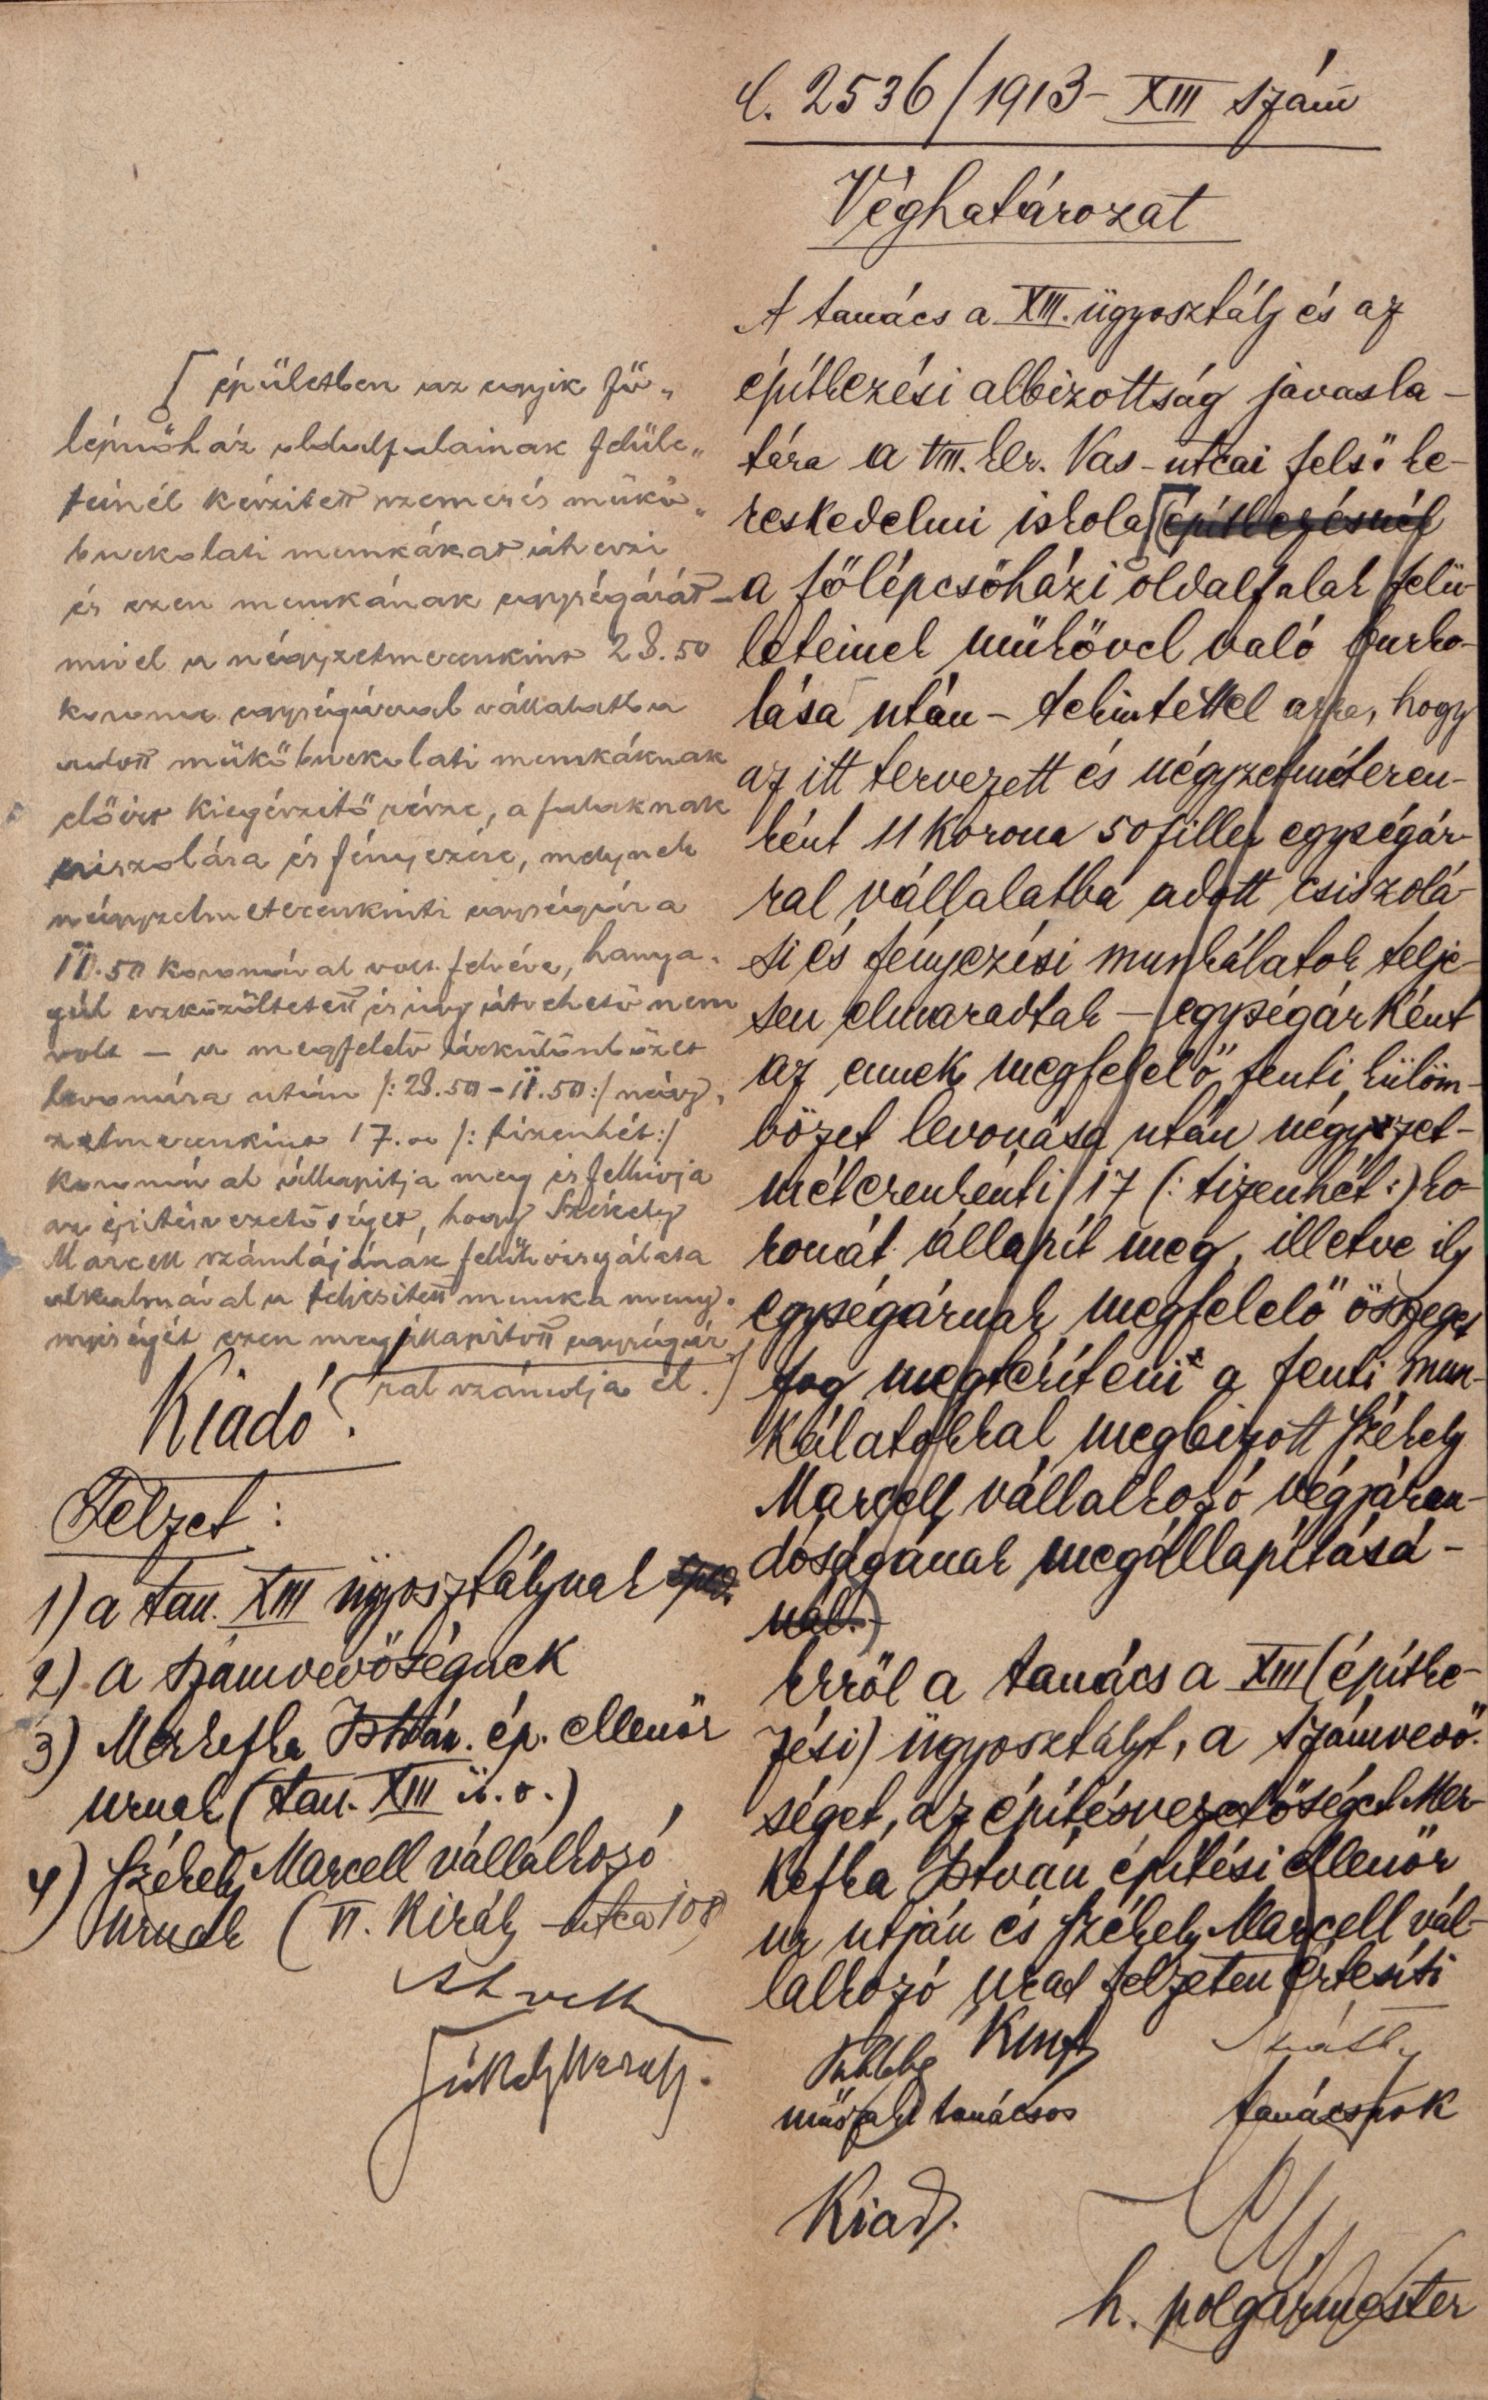 C. 2536/1913-XIII szám
Véghatározat
A tanács a XIII. ügyosztály és az
építkezési albizottság javasla-
tára a VIII. ker. Vas-utcai felső ke-
reskedelmi iskola [építkezésnél
a főlépcsőházi oldalfalak felü-
leteinek műkővel való burko-
lása után - tekintettel arra, hogy
az itt tervezett és négyzetméteren-
ként 11 korona 50 fillér egységár-
ral vállalatba adott csiszolá-
si és fényezési munkálatok telje-
sen elmaradtak - egységárként
az ennek megfelelő fenti külöm-
bözet levonása után négyzet-
méterenkénti 17 (: tizenhét :) ko-
ronát állapít meg, illetve ily
egységárnak megfelelő összeget
fog megtéríteni a fenti mun-
kálatokkal megbizott Székely
Marcell vállalkozó végjáran-
dóságának megállapításá-
nál.)
Erről a tanács a XIII (építke-
zési) ügyosztályt, a számvevő-
séget, az építésvezetőséget Mer-
kefka István építési ellenőr
ur utján és Székely Marcell vál-
lalkozó urat felzeten értesíti
műszaki tanácsos
tanácsnok
Kiad.
h. polgármester
[épületben az egyik fő„
lépcsőház oldalfalainak felüle„
teinél készitett szemcsés műkő„
burkolati munkákat átveszi
és ezen munkának egységárát -
mivel a négyzetmeterenkint 28.50
korona egységárral vállalatba
adott műkőburkolati munkáknak
előirt kiegészitő része, a falaknak
csiszolása és fényezése, melynek
négyzetmeterenkinti egységára
11.50 koronával volt felvéve, hanya-
gul eszközöltetett és igy átvehető nem
volt - a megfelelő árkülönbözet
levonása után /: 28.50-11.50 :/ négy„
zetmeterenkint 17.00 /: tizenhét :/
koronával állapitja meg és felhivja
az épitésvezetőséget, hogy Székely
Marcell számlájának felülvizsgálata
alkalmával a teljesitett munka meny-
nyiségét ezen megállapitott egységár„
ral számolja el.]
Kiadó.
Felzet:
1) a tan. XIII ügyosztálynak
2) a számvevőségnek
3) Merkefka István ép. ellenőr
urnak (tan. XIII ü. o.)
4) Székely Marcell vállalkozó
urnak (VI. Király-utca 108